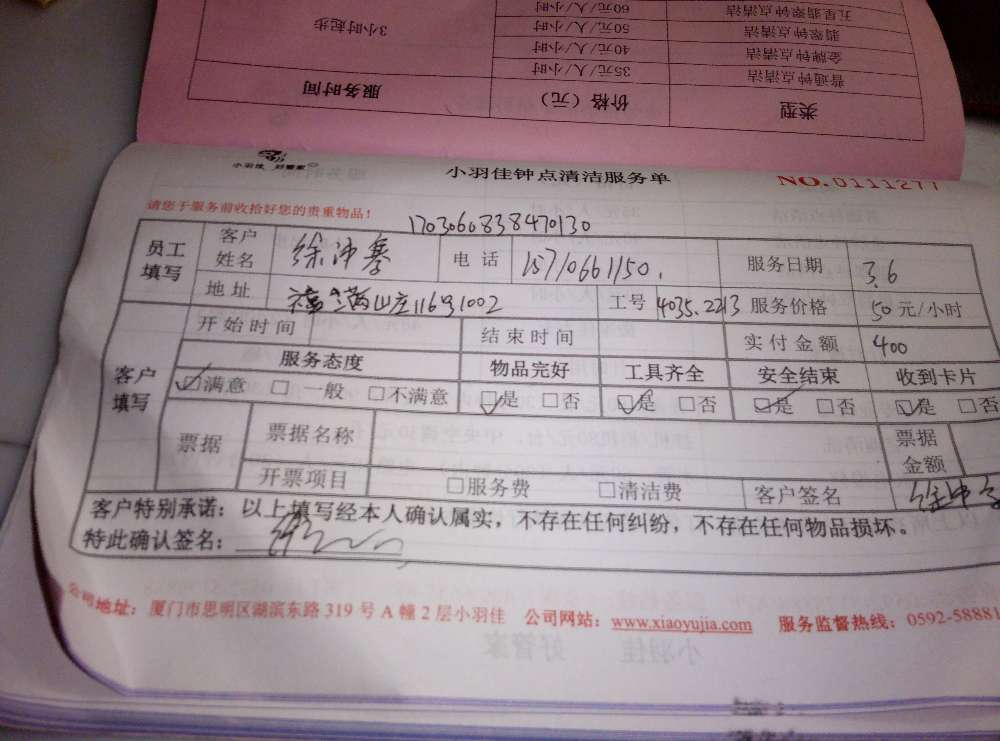 五星翡翠钟点清洁 60元/人/小时
翡翠钟点清洁 50元/人/小时 3小时起步
金牌钟点清洁 40元/人/小时
普通钟点清洁 35元/人/小时
类型 价格（元） 服务时间
小羽佳 好管家
小羽佳钟点清洁服务单
NO.0111277
请您于服务前收拾好您的贵重物品！
1703060838470130
员工填写 客户姓名 徐冲 电话 15710661150. 服务日期 3.6
地址 山庄116号1002 工号 4035.2213 服务价格 50元/小时
开始时间 结束时间 实付金额 400
客户填写 服务态度 物品完好 工具齐全 安全结束 收到卡片
☑满意 □一般 □不满意 ☑是 □否 ☑是 □否 ☑是 □否 ☑是 □否
票据 票据名称 票据金额
开票项目 □服务费 □清洁费 客户签名 徐冲
客户特别承诺：以上填写经本人确认属实，不存在任何纠纷，不存在任何物品损坏。
特此确认签名：
公司地址：厦门市思明区湖滨东路 319 号 A 幢 2 层小羽佳 公司网站：www.xiaoyujia.com 服务监督热线：0592-58881
小羽佳 好管家